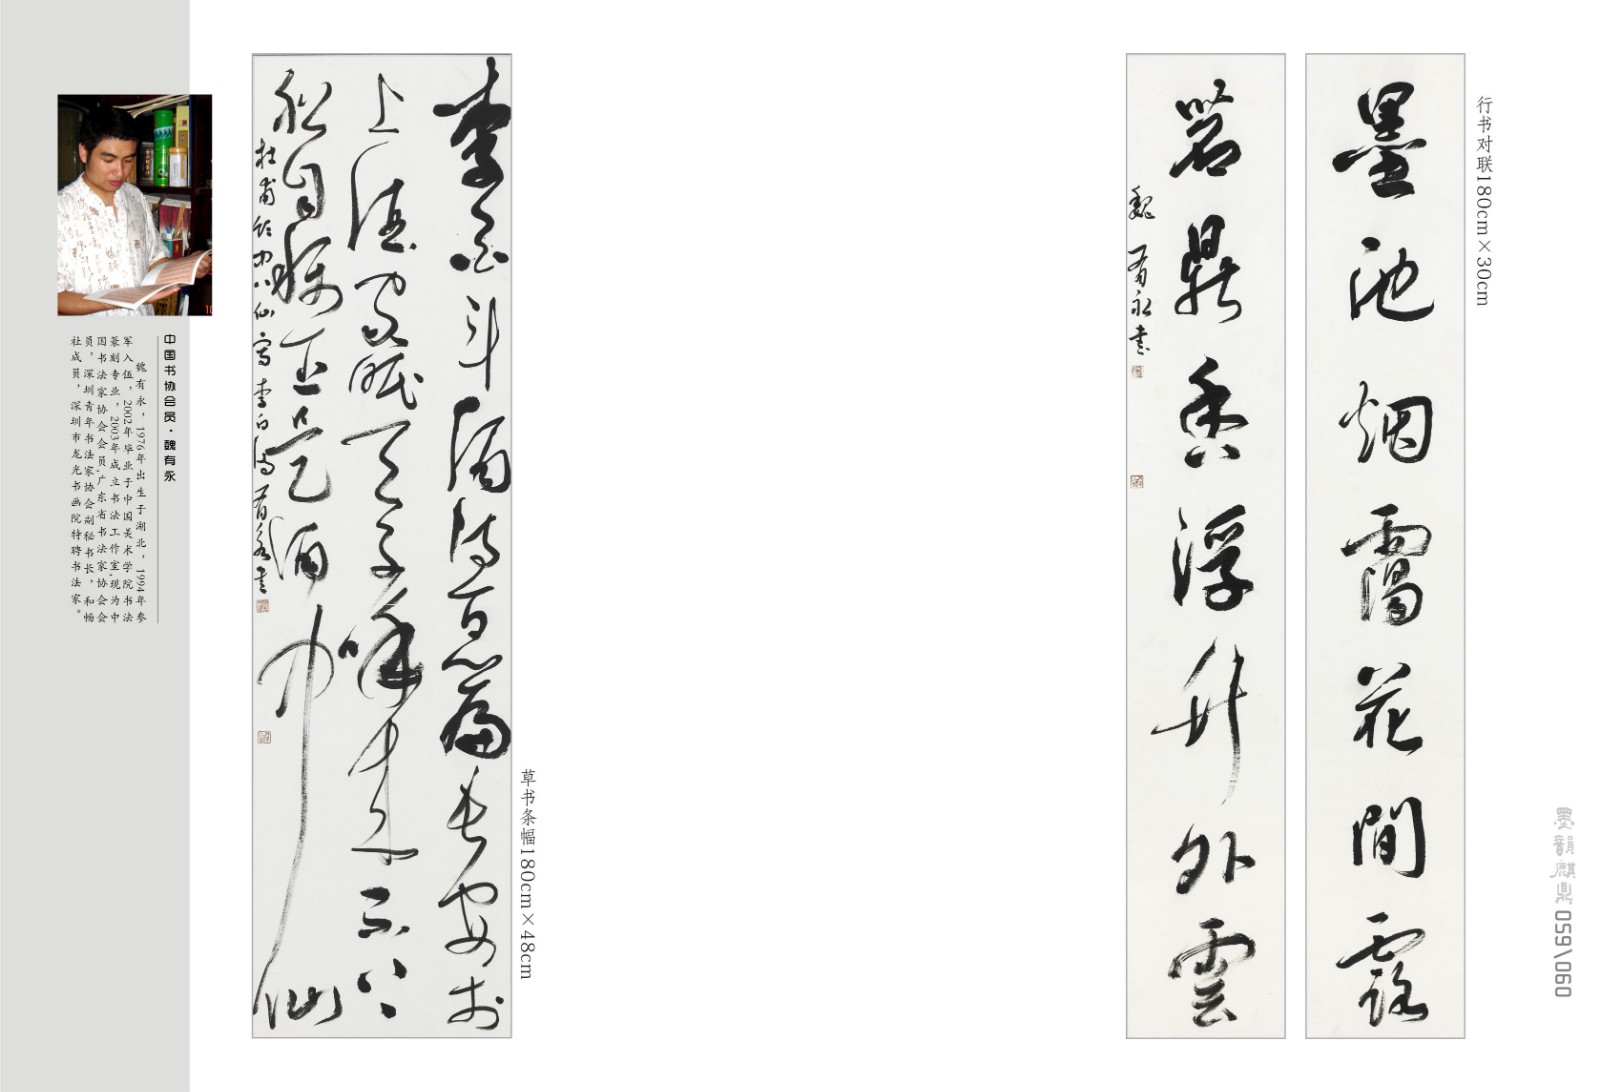 行书对联180cm×30cm
墨池烟靄花間露
茗鼎香浮竹外雲
魏有永書
草书条幅180cm×48cm
李白斗酒詩百篇長安市
上酒家眠天子呼来不上
船自稱臣是酒中仙
杜甫飲中八仙寫李白詩有永書
中国书协会员·魏有永
魏有永，1976年出生于湖北，1994年参
军入伍，2002年毕业于中国美术学院书法
篆刻专业，2003年成立书法工作室。现为中
国书法家协会会员,广东省书法家协会会
员，深圳青年书法家协会副秘书长，和畅
社成员，深圳市龙光书画院特聘书法家。
墨韻麒鼎 059\060